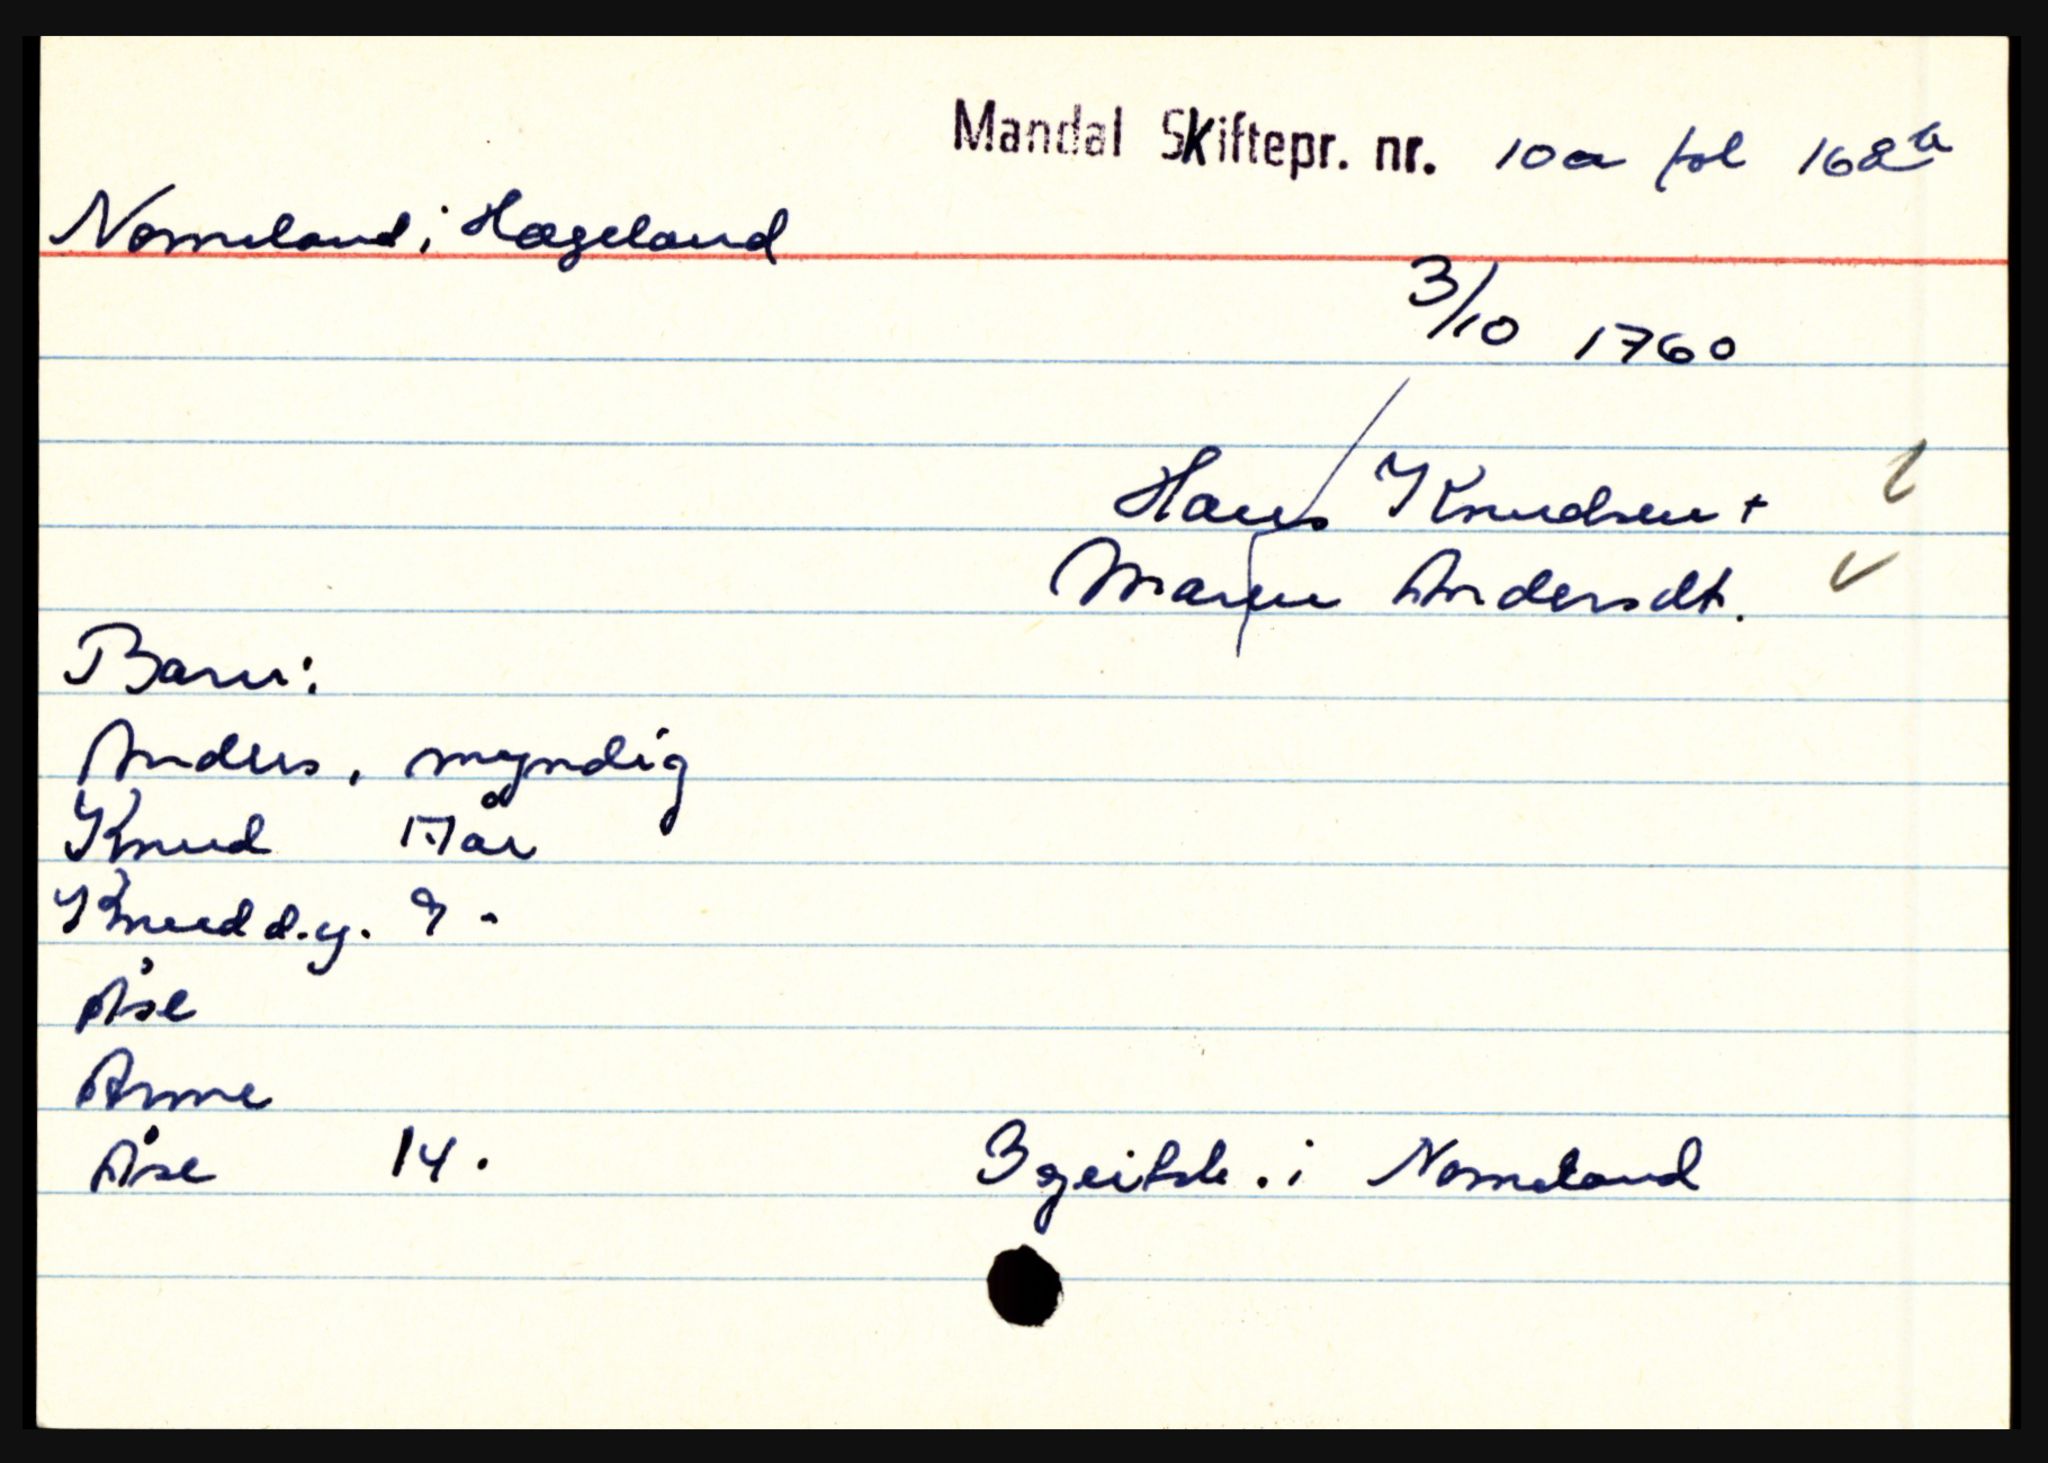 Mandal Skiftepr. nr. 10a fol 168b
Nomeland i Hægeland
3/10 1760
Hans Knudsen +
Maren Andersdt.
Barn:
Anders, myndig
Knud 17 år
Knud d.y. 9 -
Åse
Anne
Åse 14 .
3 geitsk. i Nomeland